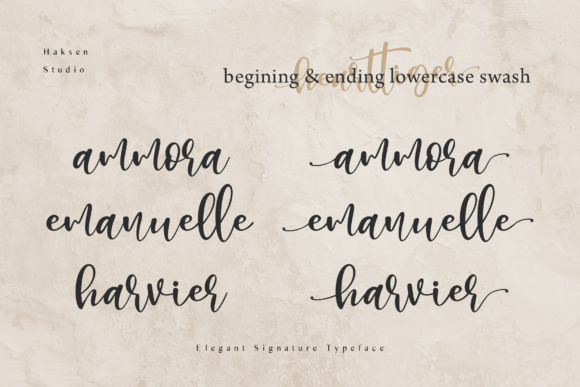 Haksen
Studio
hearttiger
begining & ending lowercase swash
ammora ammora
emanuelle emanuelle
harvier harvier
Elegant Signature Typeface